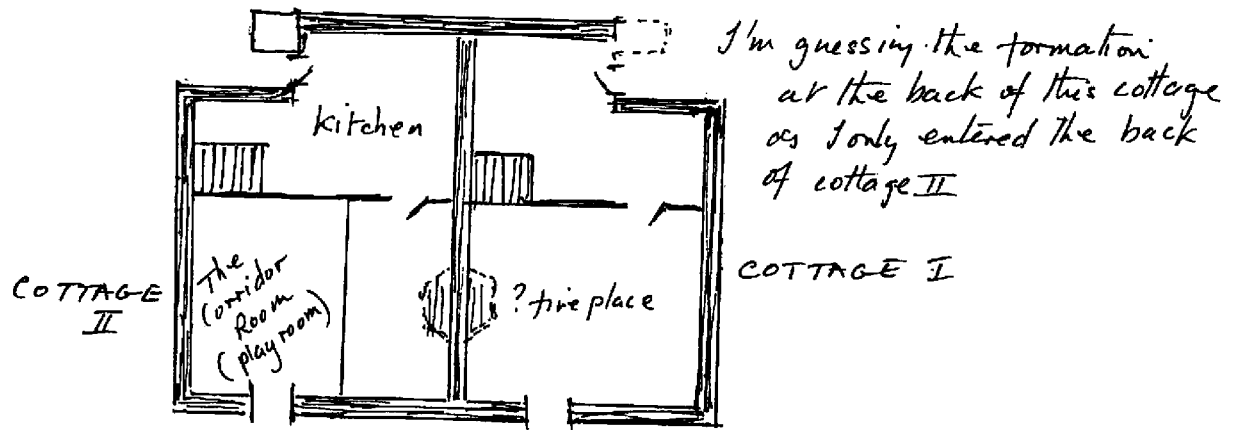 I'm guessing the formation
at the back of this cottage
as I only entered the back
of cottage II
kitchen
COTTAGE
II
The
Corridor
Room
(playroom)
? fireplace
COTTAGE I